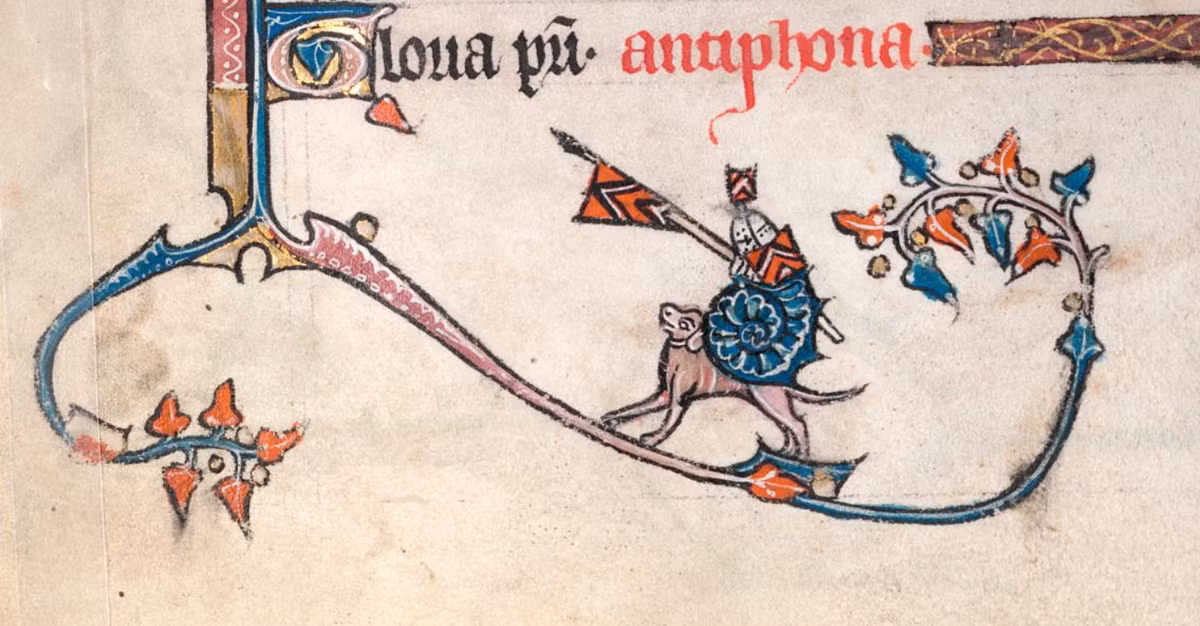 Gloria pr̄i. antiphona.